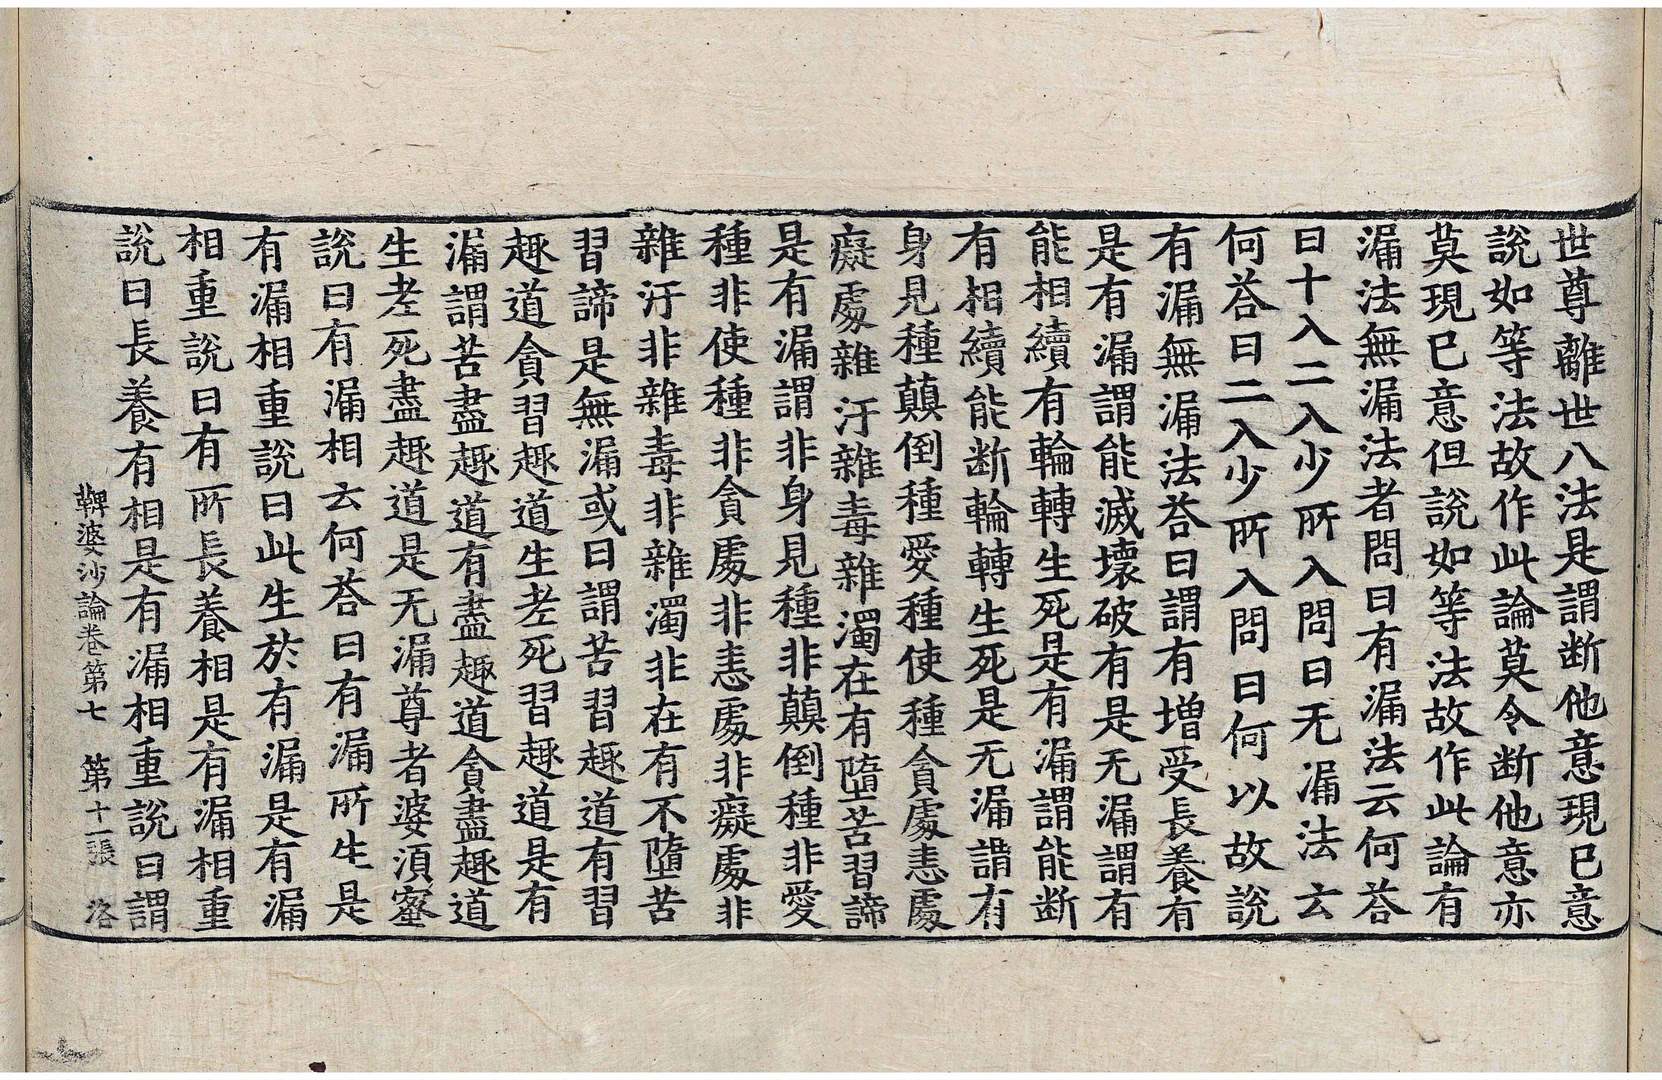 世尊離世八法是謂断他意現已意
說如等法故作此論莫令断他意亦
莫現已意但說如等法故作此論有
漏法無漏法者問曰有漏法云何荅
曰十入二入少所入問曰无漏法云
何荅曰二入少所入問曰何以故說
有漏無漏法荅曰謂有增受長養有
是有漏謂能滅壞破有是无漏謂有
能相續有輪轉生死是有漏謂能断
有相續能断輪轉生死是无漏謂有
身見種顛倒種愛種使種貪處恚處
癡處雜汙雜毒雜濁在有墮苦習諦
是有漏謂非身見種非顛倒種非愛
種非使種非貪處非恚處非癡處非
雜汙非雜毒非雜濁非在有不墮苦
習諦是無漏或曰謂苦習趣道有習
趣道貪習趣道生老死習趣道是有
漏謂苦盡趣道有盡趣道貪盡趣道
生老死盡趣道是无漏尊者婆湏蜜
說曰有漏相云何荅曰有漏所生是
有漏相重說曰此生於有漏是有漏
相重說曰有所長養相是有漏相重
說曰長養有相是有漏相重說曰謂
鞞婆沙論卷第七 第十一張 洛